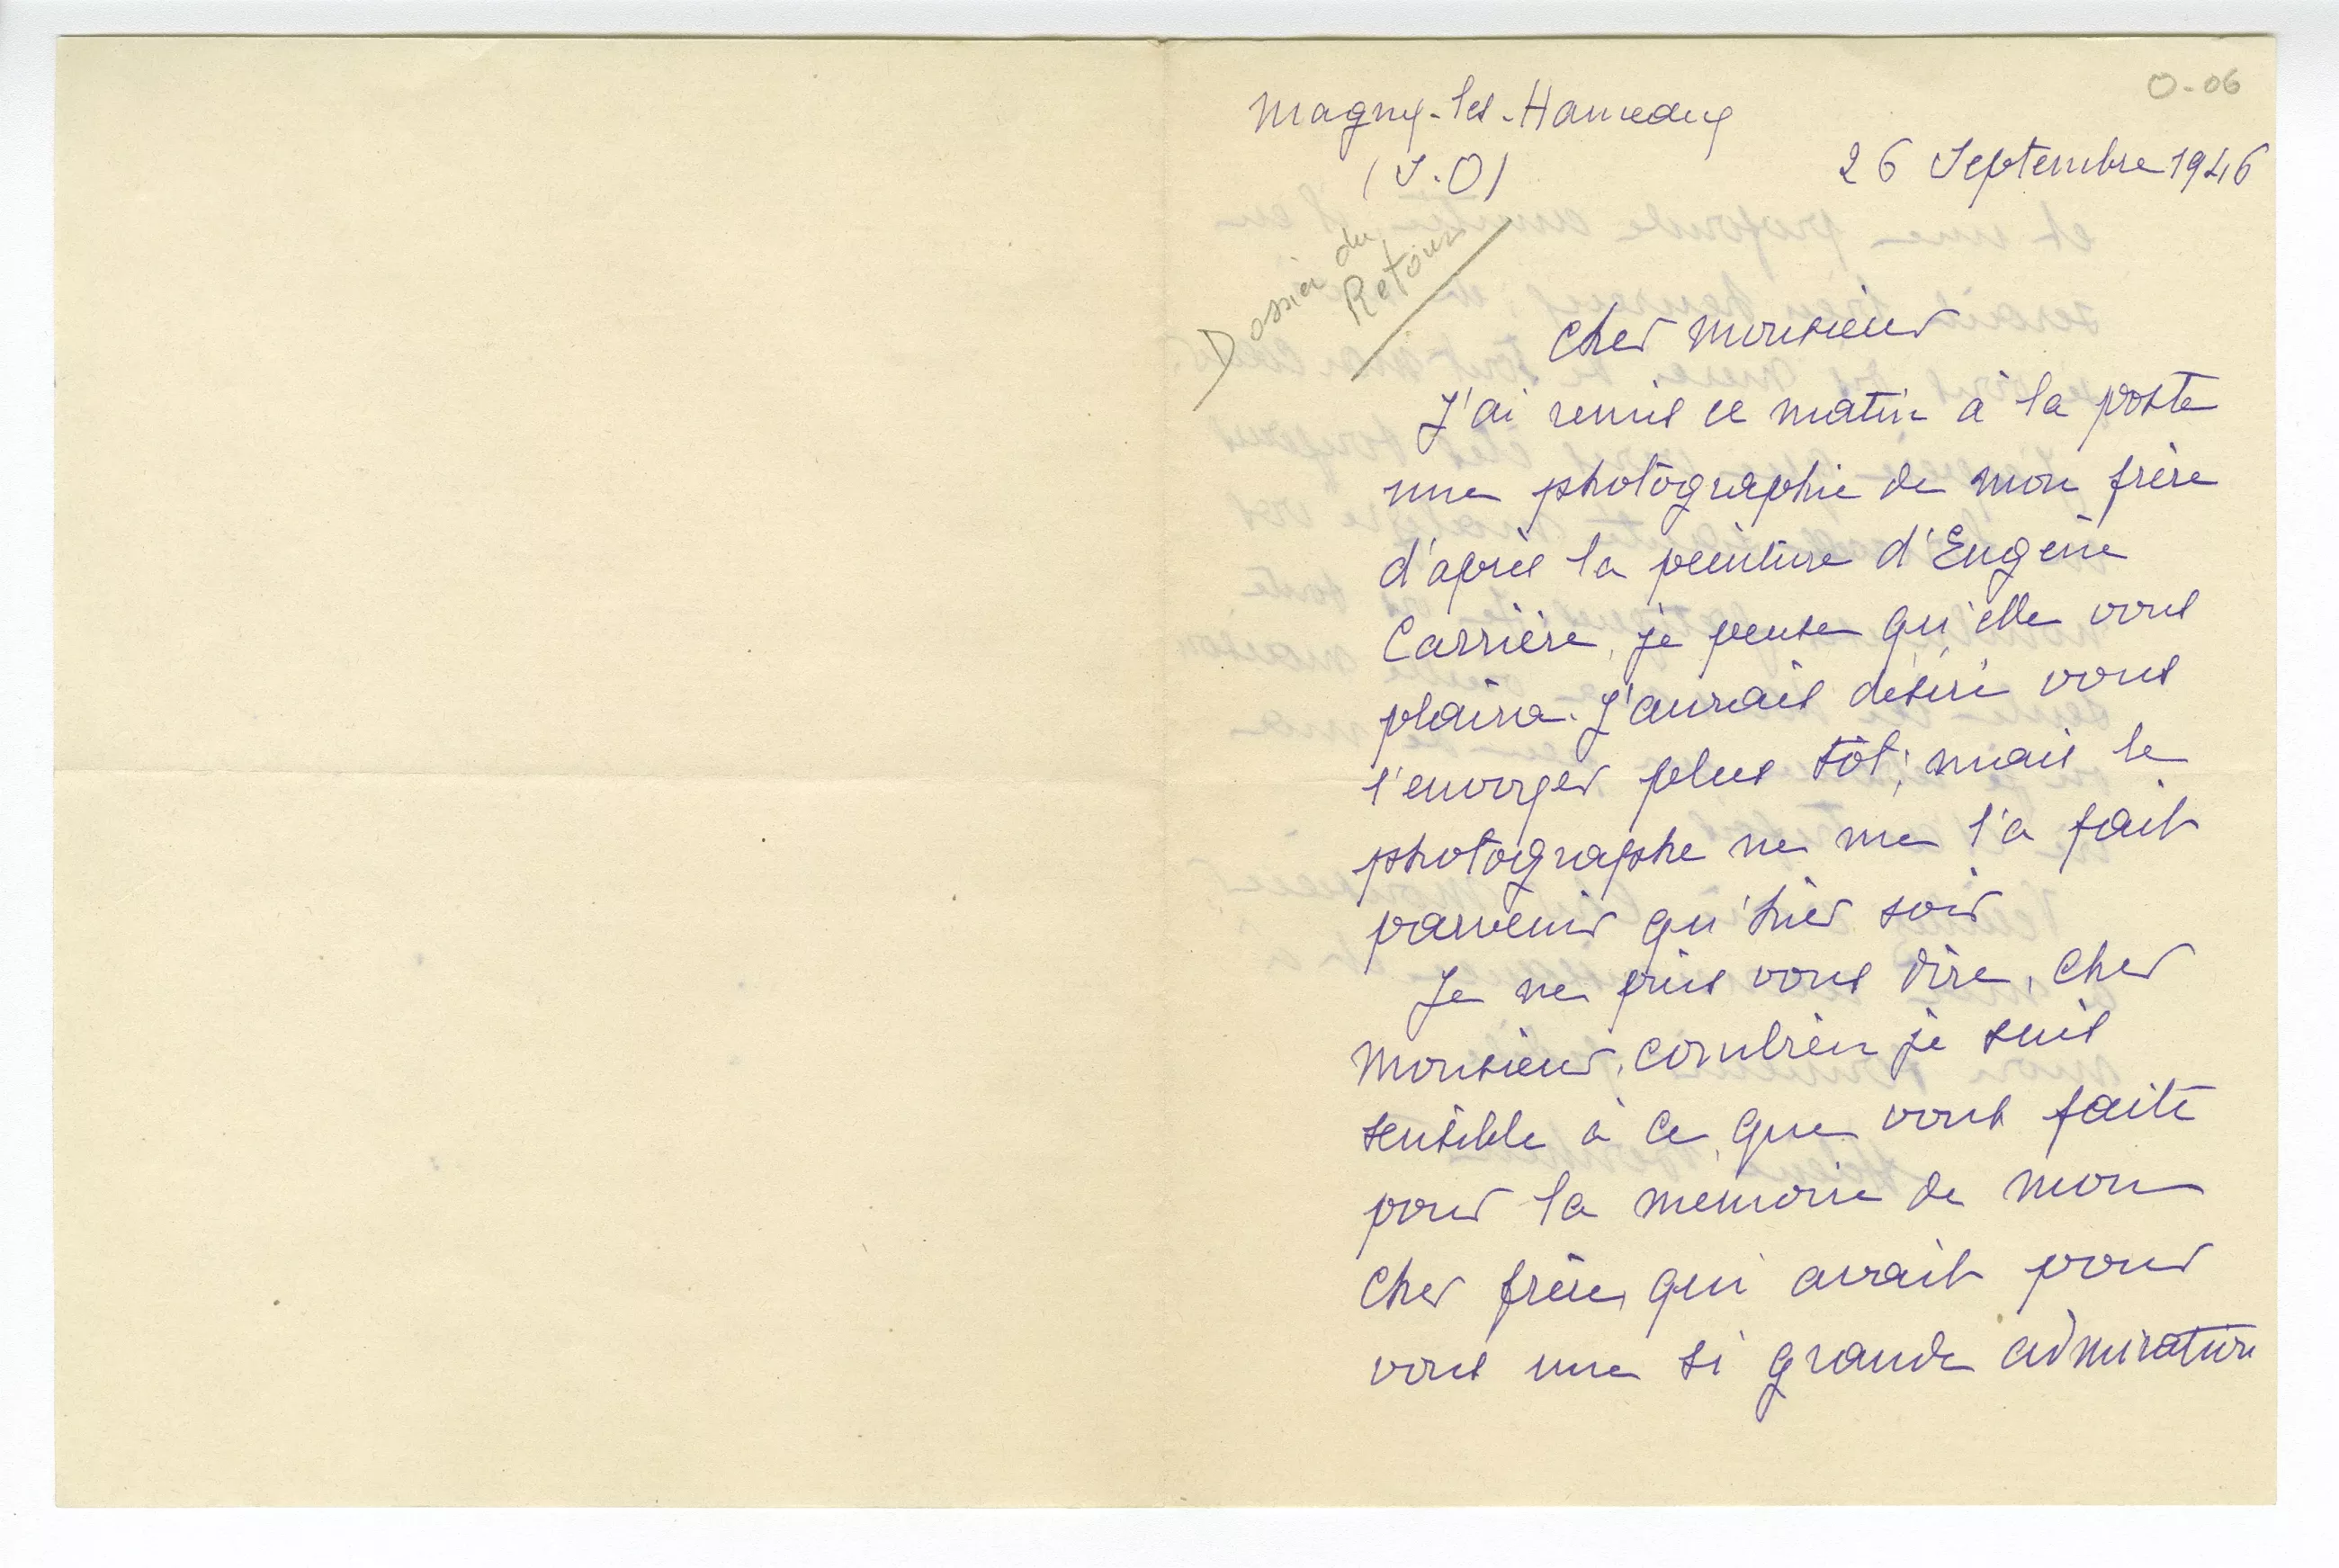 O-06
Magny-les-Hameaux
(S.O)
26 Septembre 1946
Dossier du
Retour
Cher Monsieur
J'ai remis ce matin à la poste
une photographie de mon frère
d'après la peinture d'Eugène
Carrière, je pense qu'elle vous
plaira. J'aurais désiré vous
l'envoyer plus tôt; mais le
photographe ne me l'a fait
parvenir qu'hier soir
Je ne puis vous dire, cher
Monsieur, combien je suis
sensible à ce que vous faite
pour la mémoire de mon
cher frère, qui avait pour
vous une si grande admiration